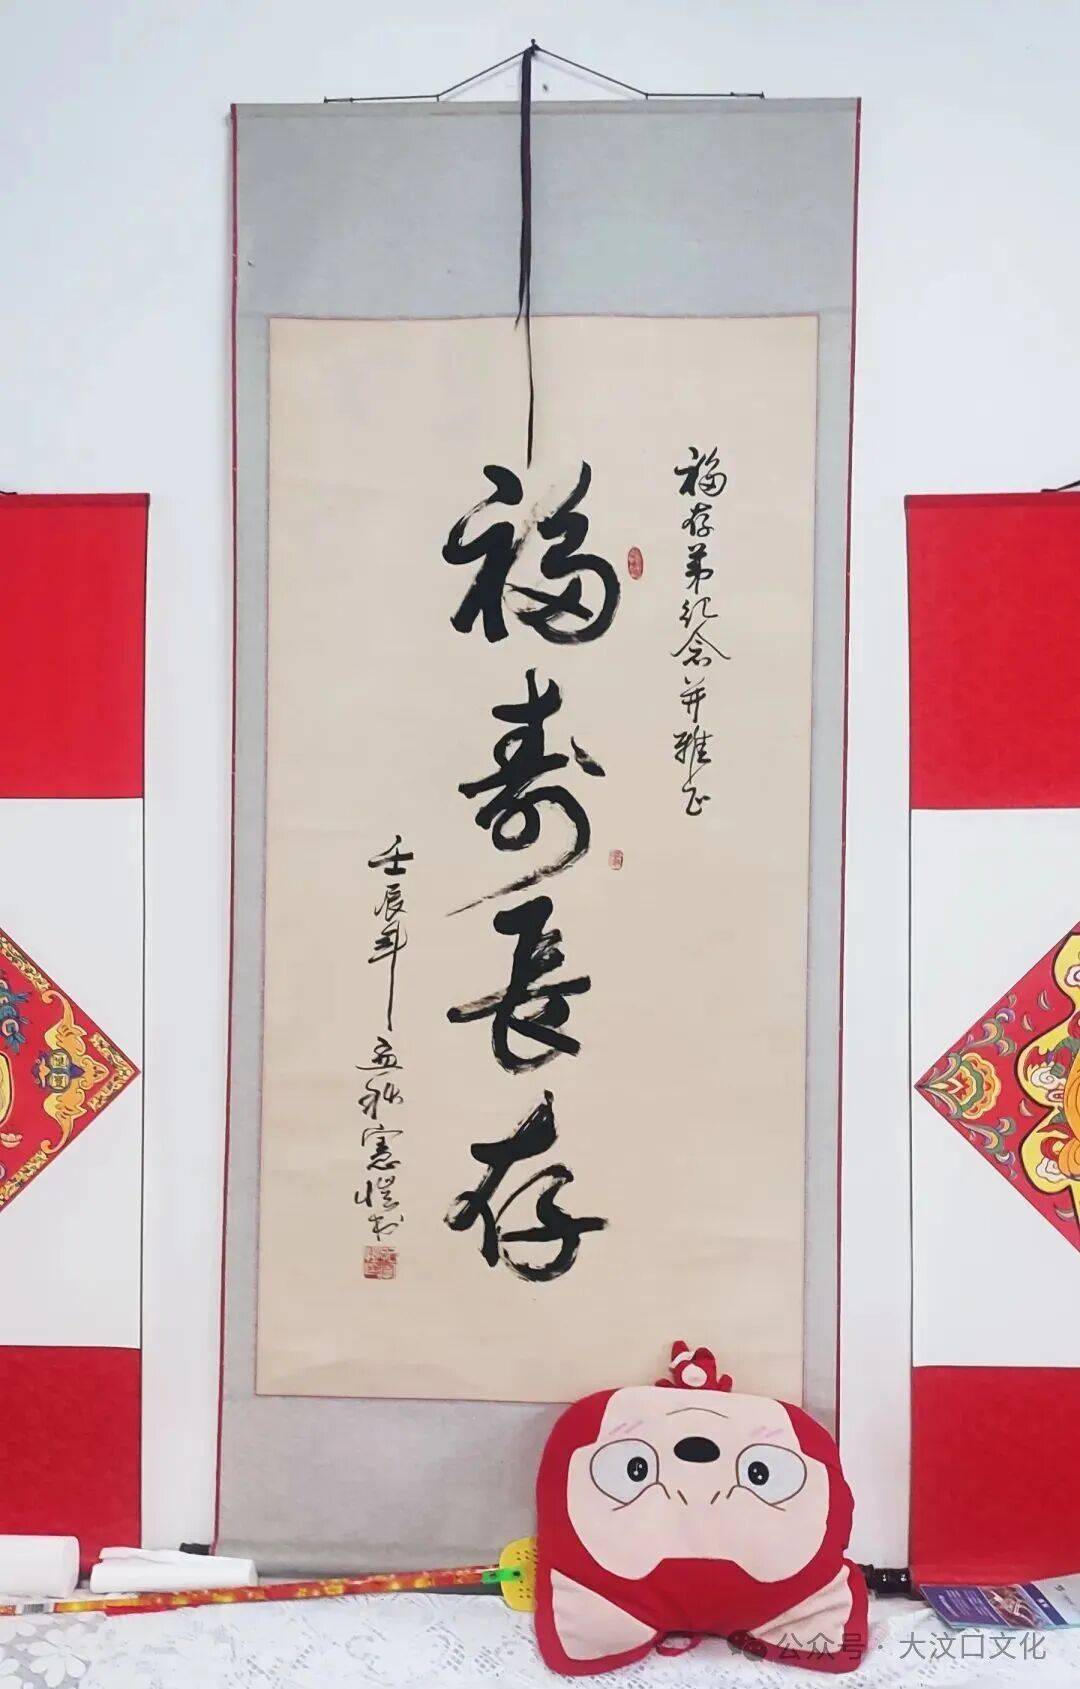 福存弟纪念并雅正
福寿長存
壬辰年孟秋憲愷书
公众号·大汶口文化